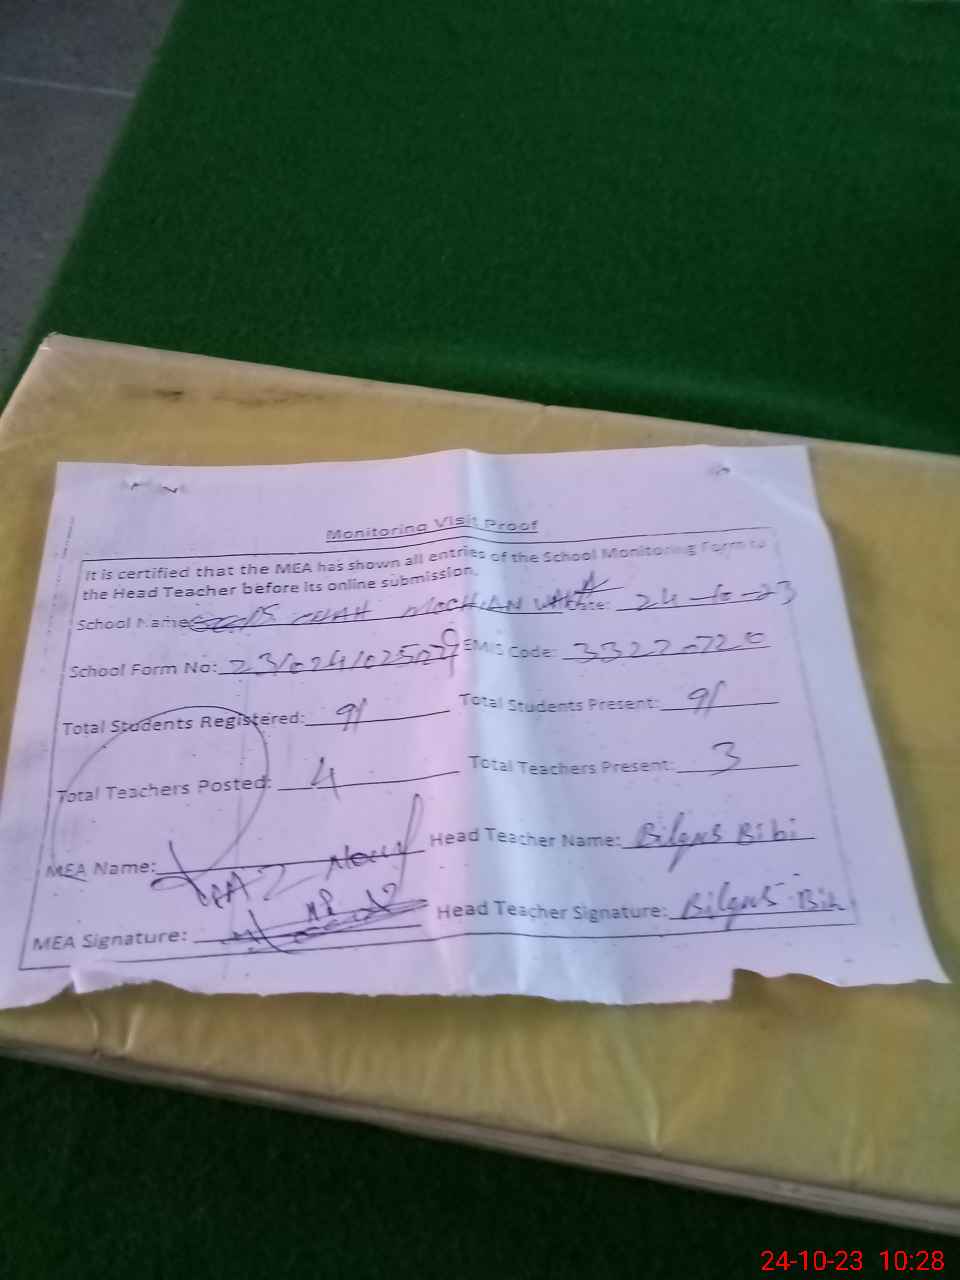 Monitoring Visit Proof
It is certified that the MEA has shown all entries of the School Monitoring Form to
the Head Teacher before its online submission.
School Name: PS CHAH MOCHIAN WALA Date: 24-10-23
School Form No: 23102410250 EMIS Code: 33227
Total Students Registered: 91 Total Students Present: 91
Total Teachers Posted: 4 Total Teachers Present: 3
MEA Name: Head Teacher Name: Bilqus Bibi
MEA Signature: Head Teacher Signature: Bilqus Bibi
24-10-23 10:28